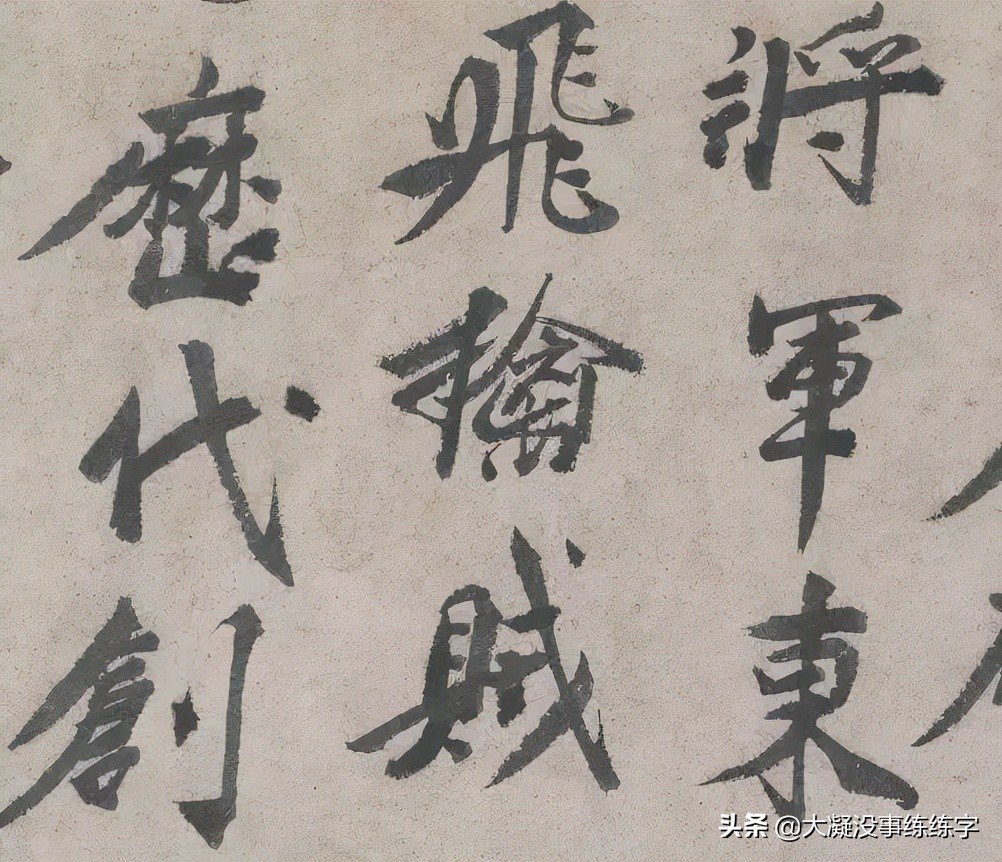 將軍東
飛擒賊
歷代創
头条 @大凝没事练练字